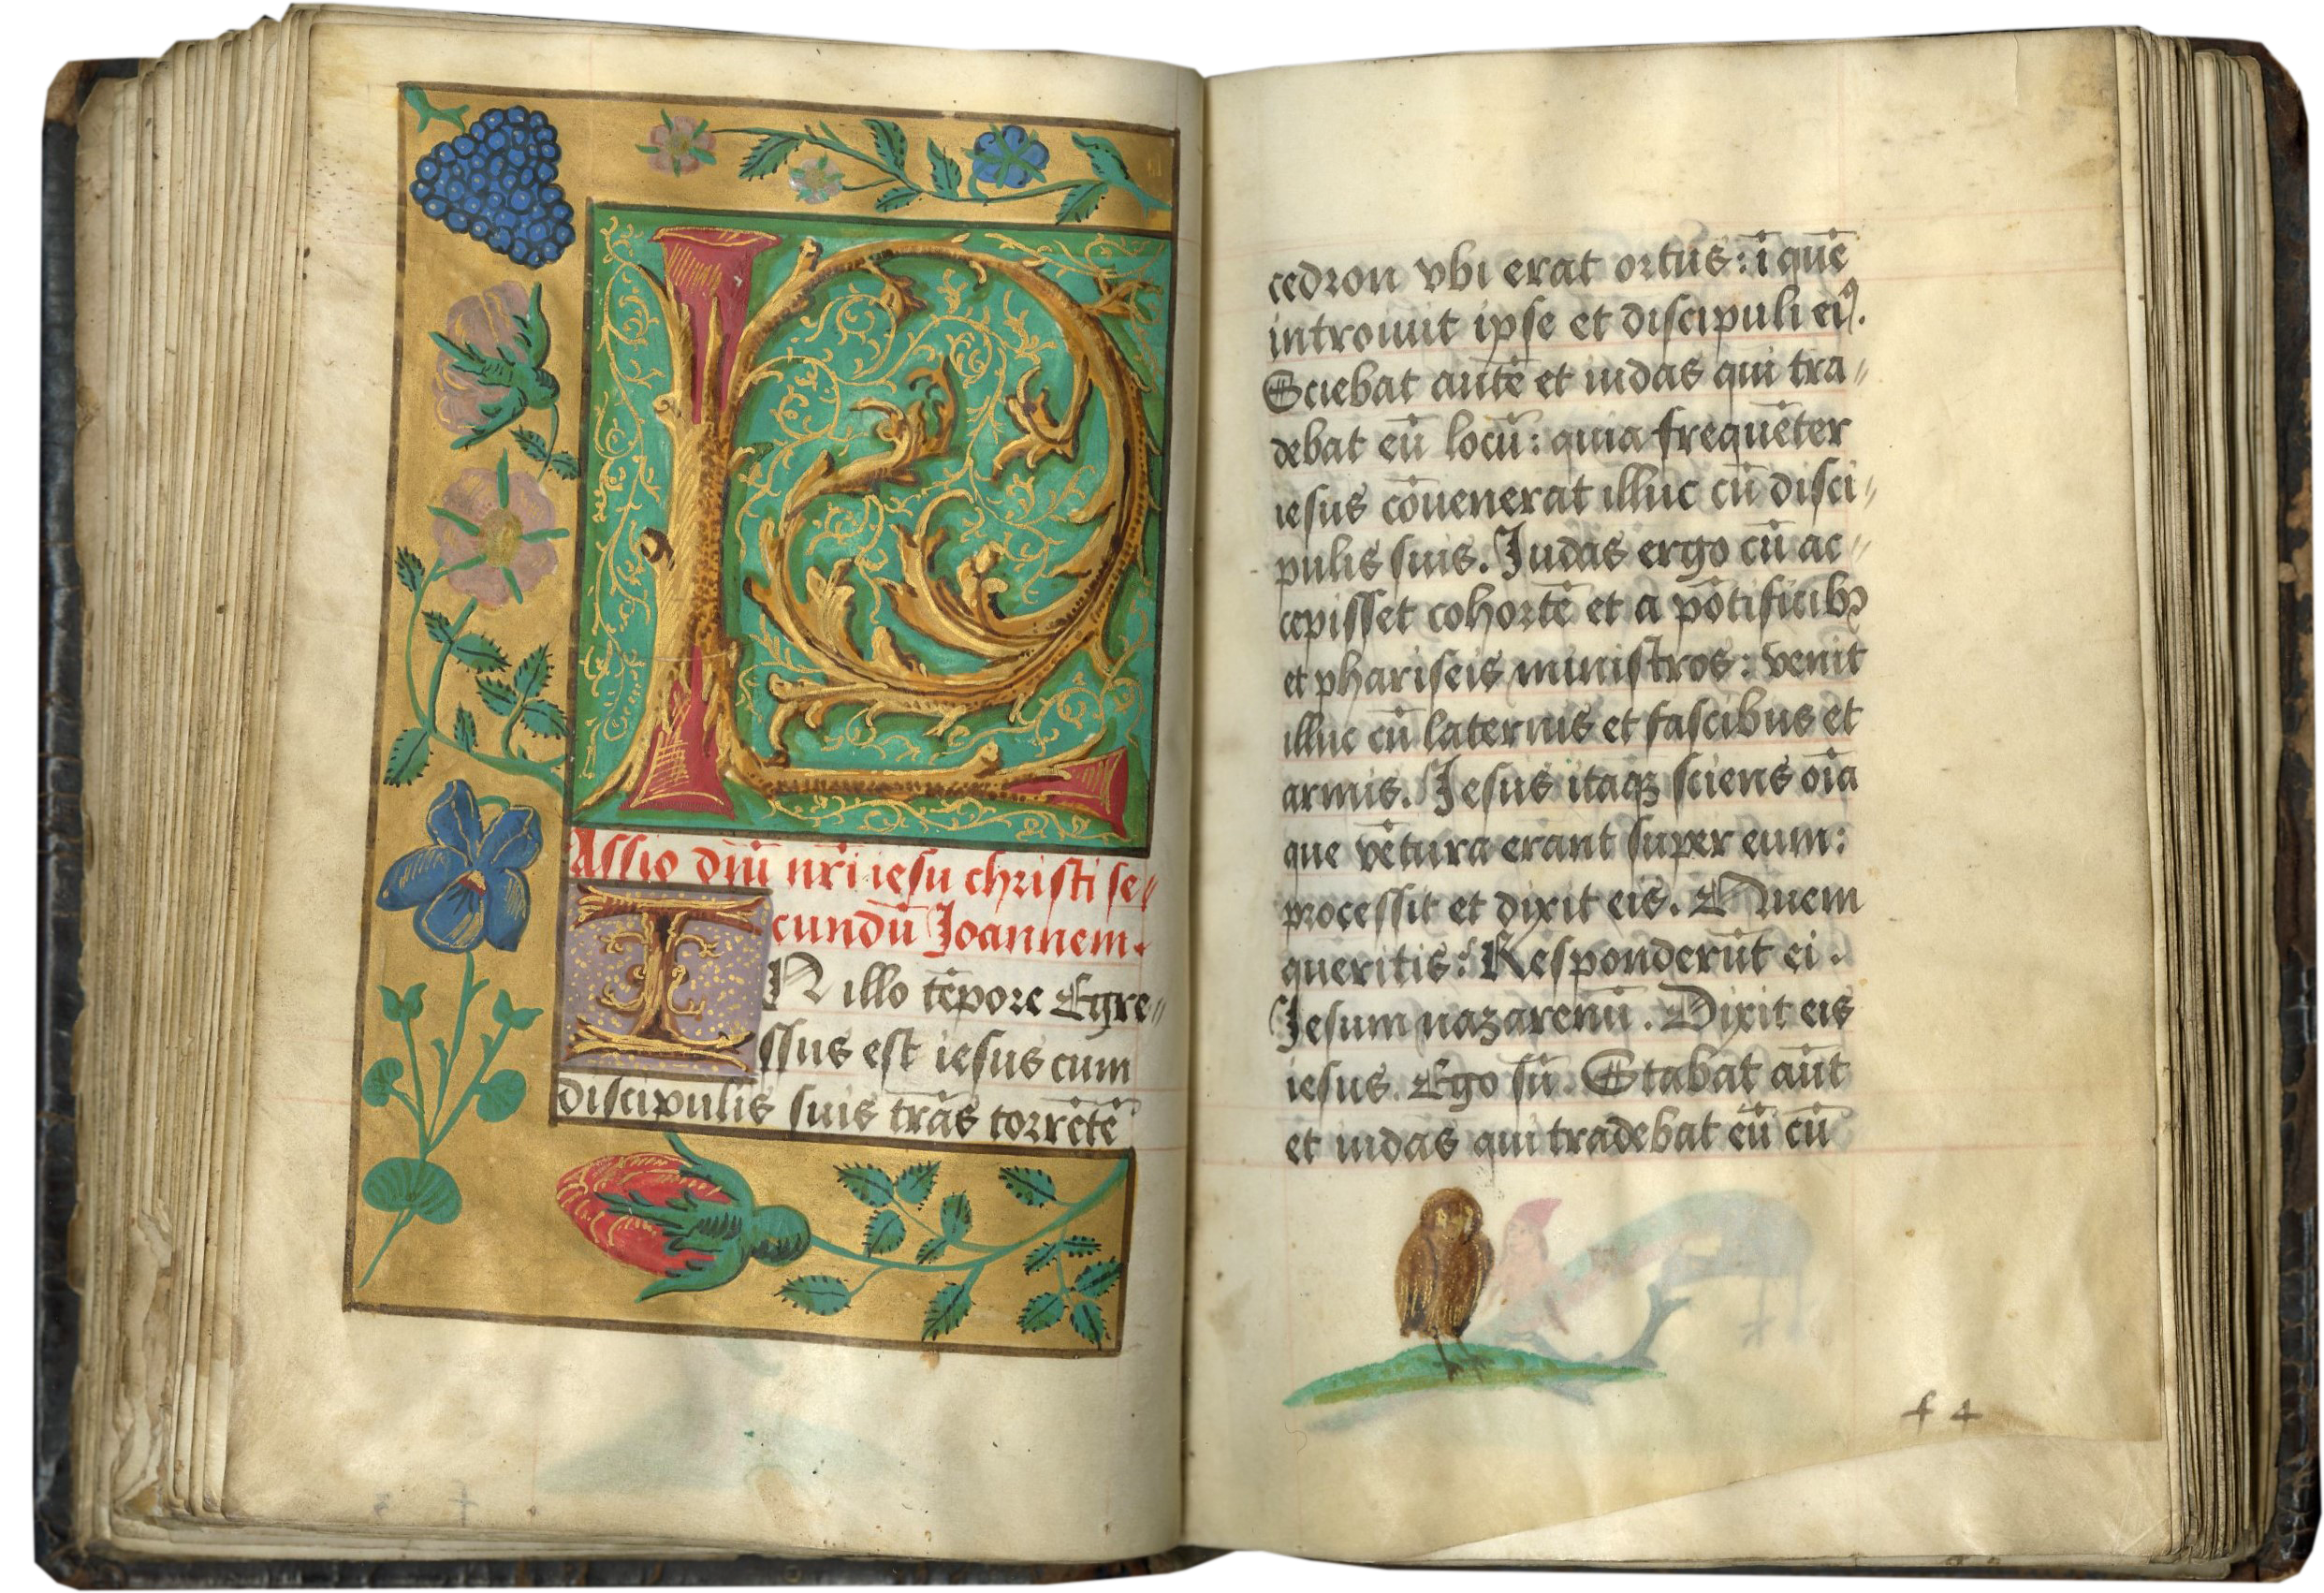 P
Assio dn̄i nr̄i iesu christi se⸗
cundū Ioannem.
IN illo tēpore Egre⸗
ssus est iesus cum
discipulis suis trās torrētē
cedron vbi erat ortus: ī quē
introiuit ipse et discipuli eiꝰ.
Sciebat autē et iudas qui tra⸗
debat eū locū: quia frequēter
iesus cōuenerat illuc cū disci⸗
pulis suis. Iudas ergo cū ac⸗
cepisset cohortē et a pōtificibꝫ
et phariseis ministros: venit
illuc cū laternis et fascibus et
armis. Iesus itaqꝫ sciens oīa
que vētura erant super eum:
processit et dixit eis. Quem
queritis: Responderūt ei.
Iesum nazarenū. Dixit eis
iesus. Ego sū. Stabat aūt
et iudas qui tradebat eū cū
f 4